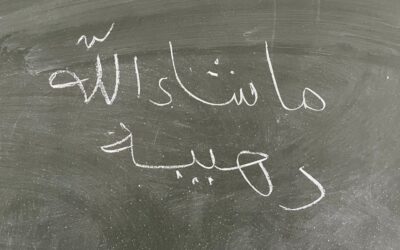 ما شاء اللّٰه
رهيبة